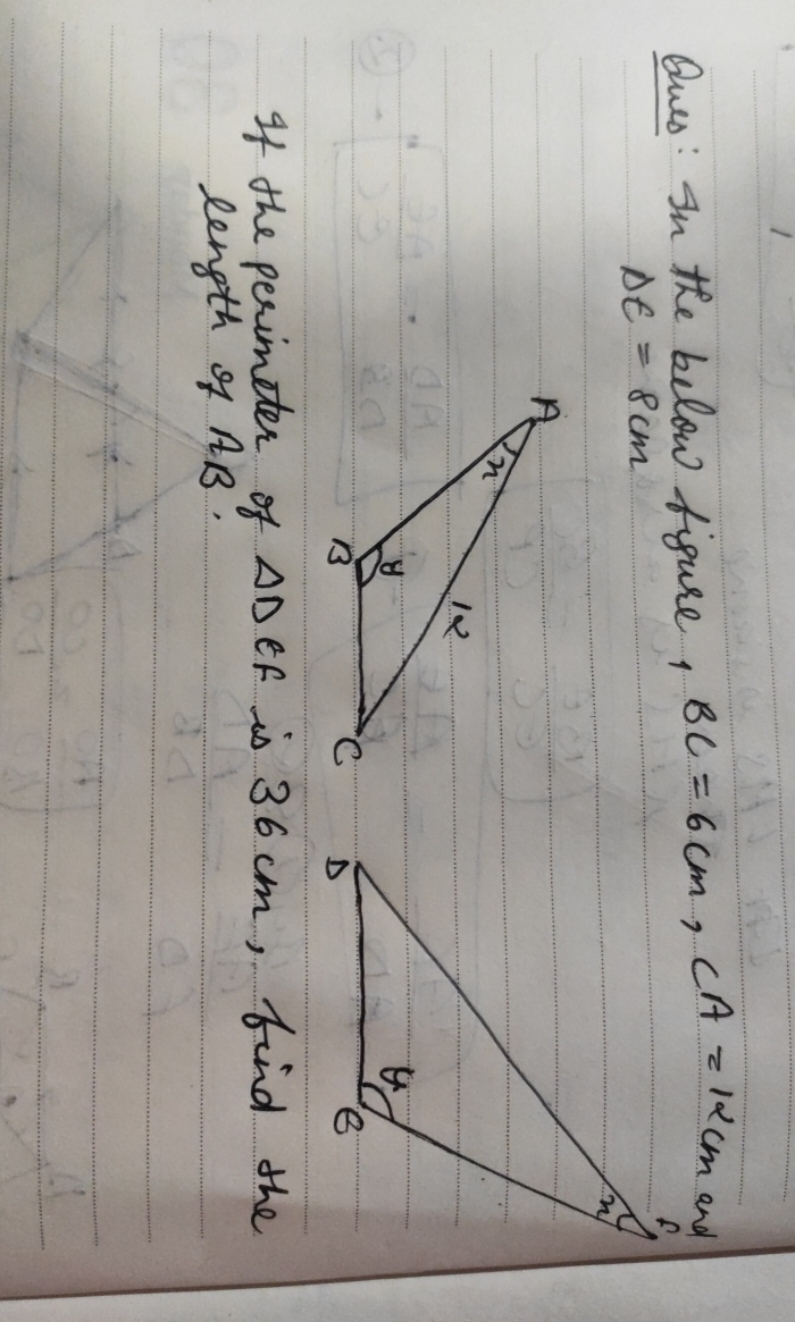 Ques: In the below figure, BC = 6cm, CA = 12cm and
DE = 8cm
A
x
12
y
B
C
F
x
y
D
E
If the perimeter of ΔDEF is 36cm, find the
length of AB.